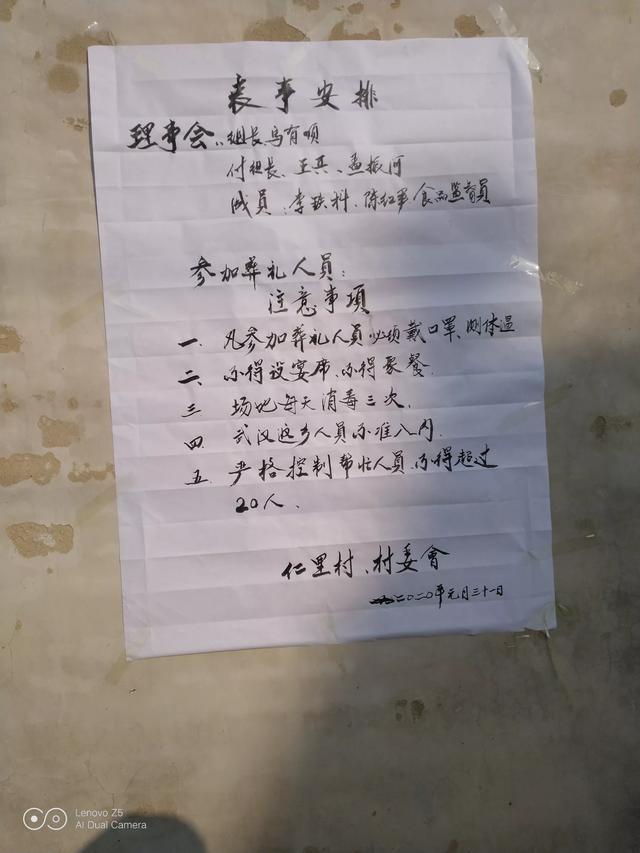 丧事安排
理事会：组长乌有顺
付组长、王兵、孟振河
成员：李铁料、陈红军食品监督员
参加葬礼人员：
注意事项
一、凡参加葬礼人员必须戴口罩、测体温
二、不得设宴席、不得聚餐.
三 场地每天消毒三次.
四、武汉返乡人员不准入内.
五、严格控制帮忙人员、不得超过
20人、
仁里村、村委會
二〇二〇年元月三十一日
Lenovo Z5
AI Dual Camera